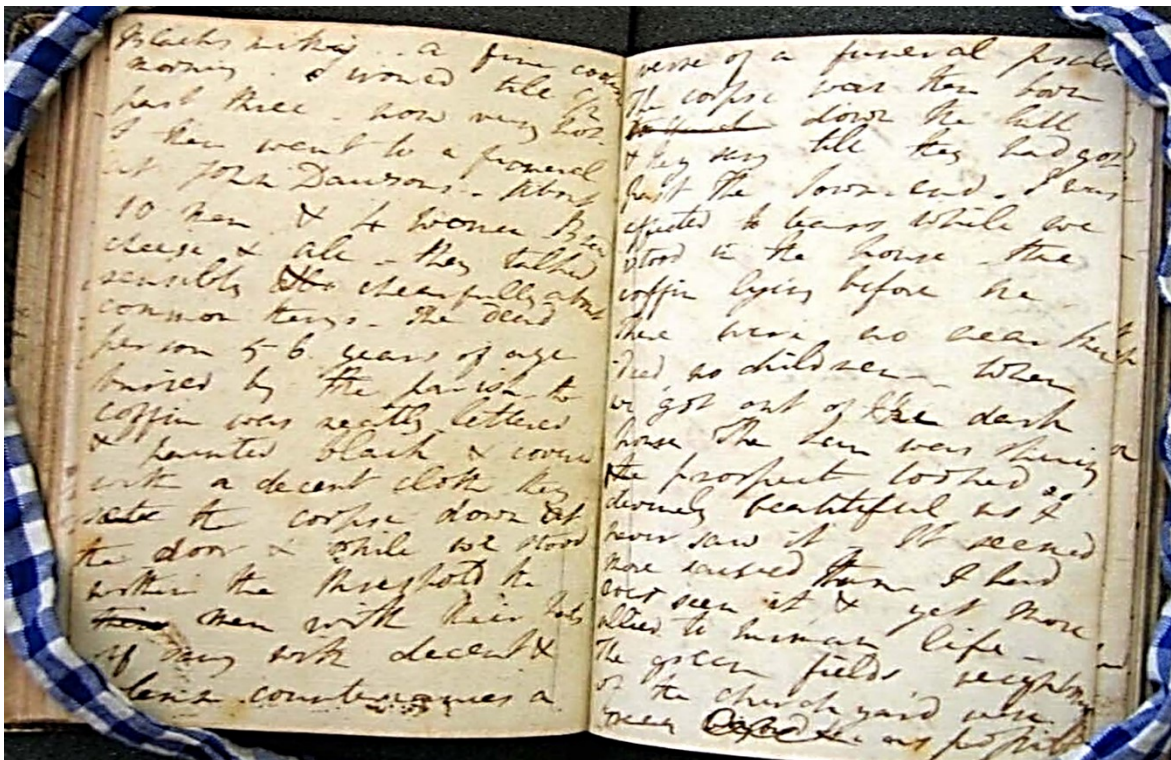 Blacksmith's. a fine cool
morning. I ironed till
past three - now very hot.
I then went to a funeral
at John Dawsons - About
10 men & 4 women Bread
cheese & ale - they talked
sensibly & cheerfully about
common things - The dead
person 56 years of age
buried by the parish - the
coffin was neatly lettered
& painted black & covered
with a decent cloth they
set the corpse down at
the door & while we stood
within the threshold the
men with their hats
off sang with decent &
solemn countenances a
verse of a funeral psalm
The corpse was then born
down the hill
& they sang till they had got
past the Town-end. I was
affected to tears while we
stood in the house - the
coffin lying before me.
There were no near kindred
no children - When
we got out of the dark
house The sun was shining &
the prospect looked so
divinely beautiful as I
never saw it It seemed
more sacred than I had
ever seen it & yet more
allied to human life -
The green fields, neighbours
of the church yard were
green as possible